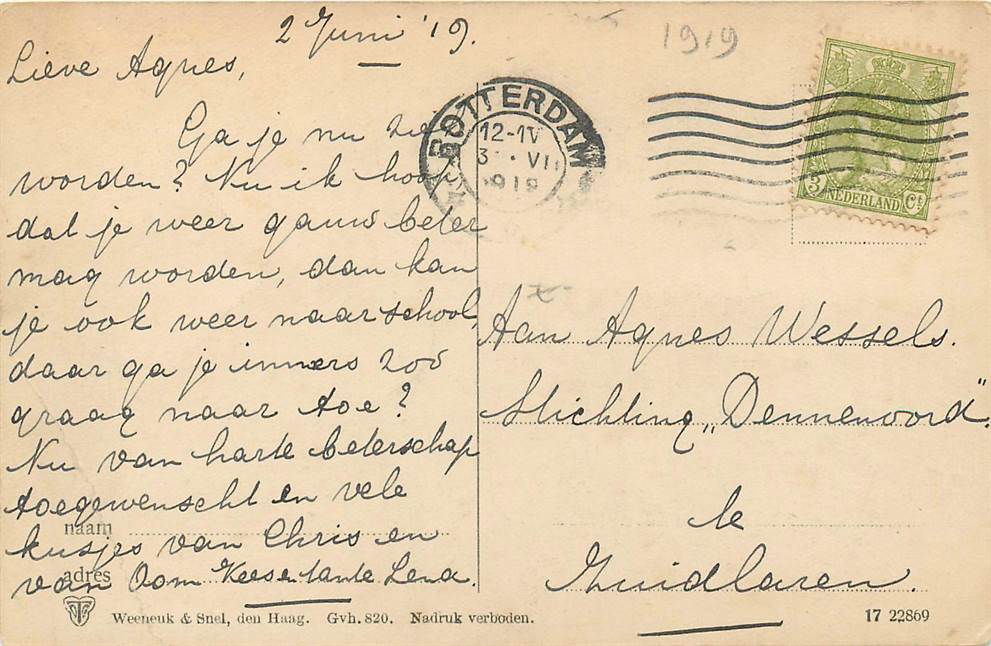 2 Juni '19.
1919
Lieve Agnes,
Ga je nu zie
worden? Nu ik hoop
dat je weer gauw beter
mag worden, dan kan
je ook weer naar school,
daar ga je immers zoo
graag naar toe?
Nu van harte beterschap
toegewenscht en vele
kusjes van Chris en
van Oom Kees en tante Lena.
naam
adres
ROTTERDAM
12-IV
3 VII
1919
3 NEDERLAND Ct
Aan Agnes Wessels.
Stichting „Dennenoord”.
te
Zuidlaren.
Weenenk & Snel, den Haag. Gvh. 820. Nadruk verboden.
17 22869